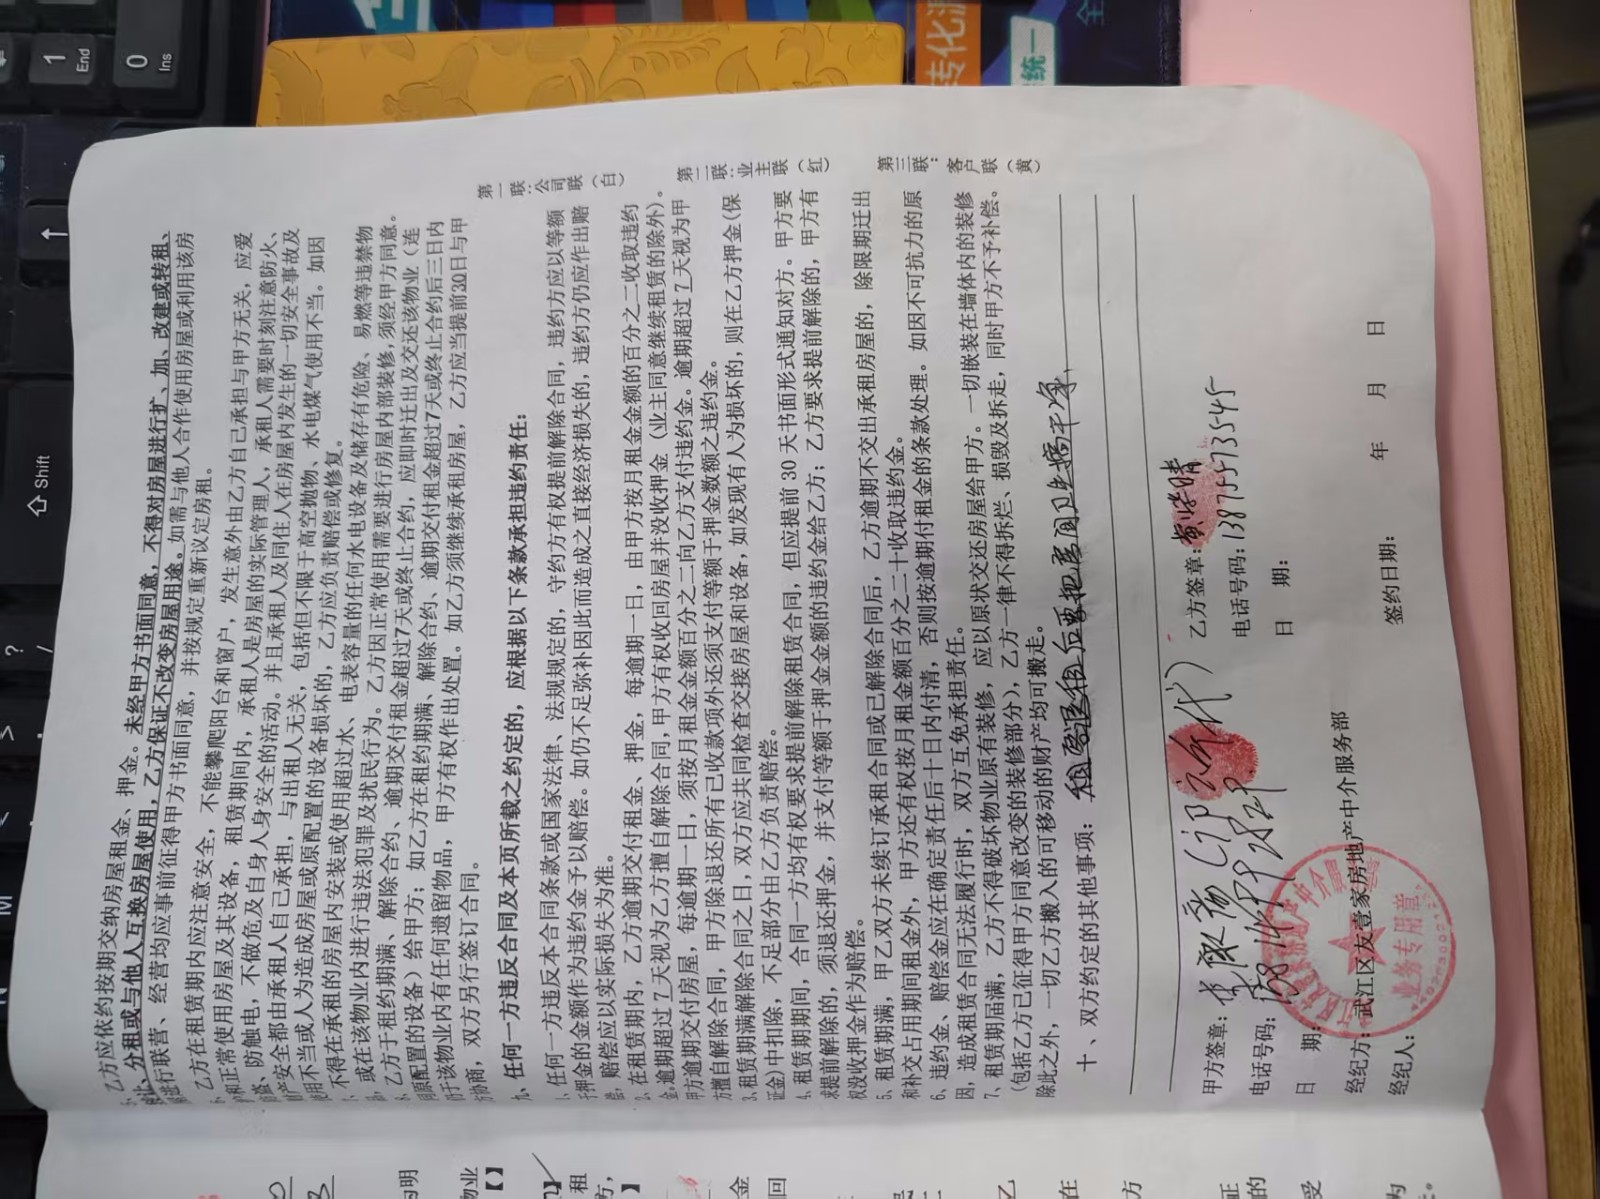 5、乙方应依约按期交纳房屋租金、押金。未经甲方书面同意，不得对房屋进行扩、加、改建或转租、
分租或与他人互换房屋使用，乙方保证不改变房屋用途。如需与他人合作使用房屋或利用该房
进行联营、经营均应事前征得甲方书面同意，并按规定重新议定房租。
乙方在租赁期内应注意安全，不能攀爬阳台和窗户，发生意外由乙方自己承担与甲方无关，应爱
护和正常使用房屋及其设备，租赁期间内，承租人是房屋的实际管理人，承租人需要时刻注意防火、
防触电，不做危及自身人身安全的活动。并且承租人及同住人在房屋内发生的一切安全事故及
财产安全都由承租人自己承担，与出租人无关，包括但不限于高空抛物、水电煤气使用不当。如因
使用不当或人为造成房屋或原配置的设备损坏的，乙方应负责赔偿或修复。
不得在承租的房屋内安装或使用超过水、电表容量的任何水电设备及储存有危险、易燃等违禁物
或在该物业内进行违法犯罪及扰民行为。乙方因正常使用需要进行房屋内部装修，须经甲方同意。
乙方于租约期满、解除合约、逾期交付租金超过7天或终止合约，应即时迁出及交还该物业（连
同原配置的设备）给甲方；如乙方在租约期满、解除合约、逾期交付租金超过7天或终止合约后三日内
仍于该物业内有任何遗留物品，甲方有权作出处置。如乙方须继续承租房屋，乙方应当提前30日与甲
方协商，双方另行签订合同。
九、任何一方违反合同及本页所载之约定的，应根据以下条款承担违约责任：
1、任何一方违反本合同条款或国家法律、法规规定的，守约方有权提前解除合同，违约方应以等额
于押金的金额作为违约金予以赔偿。如仍不足弥补因此而造成之直接经济损失的，违约方仍应作出赔
偿，赔偿应以实际损失为准。
2、在租赁期内，乙方逾期交付租金、押金，每逾期一日，由甲方按月租金金额的百分之二收取违约
金。逾期超过7天视为乙方擅自解除合同，甲方有权收回房屋并没收押金（业主同意继续租赁的除外）。
甲方逾期交付房屋，每逾期一日，须按月租金金额百分之二向乙方支付违约金。逾期超过7天视为甲
方擅自解除合同，甲方除退还所有已收款项外还须支付等额于押金数额之违约金。
3、租赁期满解除合同之日，双方应共同检查交接房屋和设备，如发现有人为损坏的，则在乙方押金（保
证金）中扣除，不足部分由乙方负责赔偿。
4、租赁期期间，合同一方均有权要求提前解除租赁合同，但应提前30天书面形式通知对方。甲方要
求提前解除的，须退还押金，并支付等额于押金金额的违约金给乙方；乙方要求提前解除的，甲方有
权没收押金作为赔偿。
5、租赁期满，甲乙双方未续订承租合同或已解除合同后，乙方逾期不交出承租房屋的，除限期迁出
和补交占用期间租金外，甲方还有权按月租金额百分之二十收取违约金。
6、违约金、赔偿金应在确定责任后十日内付清，否则按逾期付租金的条款处理。如因不可抗力的原
因，造成租赁合同无法履行时，双方互免承担责任。
7、租赁期届满，乙方不得破坏物业原有装修，应以原状交还房屋给甲方。一切嵌装在墙体内的装修
（包括乙方已征得甲方同意改变的装修部分），乙方一律不得拆烂、损毁及拆走，同时甲方不予补偿。
除此之外，一切乙方搬入的可移动的财产均可搬走。
十、双方约定的其他事项：租客退租后要把房间卫生搞干净、
甲方签章：
乙方签章：
电话号码：
电话号码：13875573545
日 期：
日 期：
经纪方：武江区友壹家房地产中介服务部
经纪人：
签约日期： 年 月 日
第一联：公司联（白）
第二联：业主联（红）
第三联：客户联（黄）
业务专用章
1
End
0
Ins
Shift
?
/
>
M
N
转化
统一
全